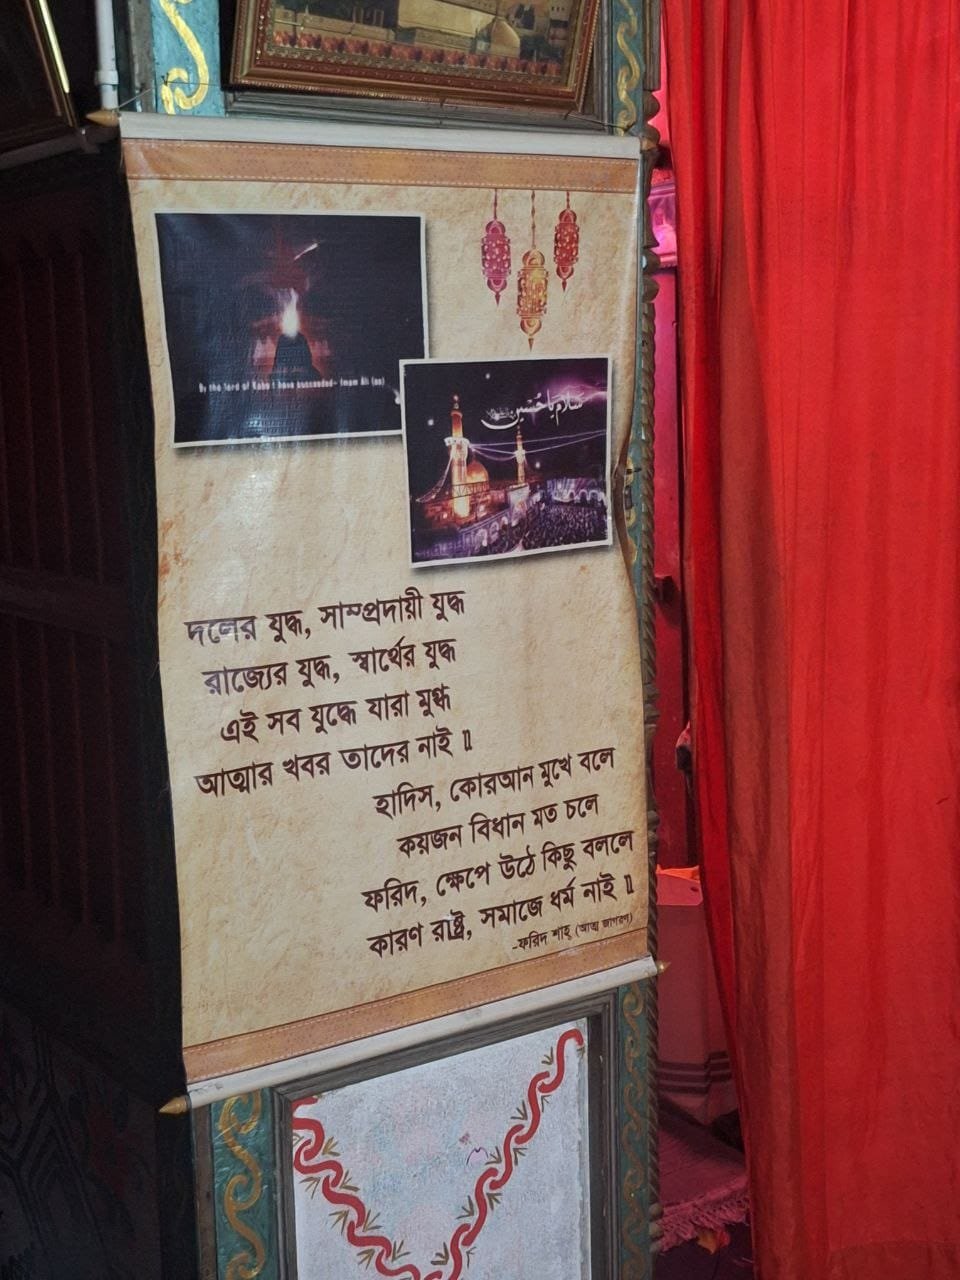 By the lord of Kaba I have succeeded- Imam Ali (as)
سلام یا حسین
দলের যুদ্ধ, সাম্প্রদায়ী যুদ্ধ
রাজ্যের যুদ্ধ, স্বার্থের যুদ্ধ
এই সব যুদ্ধে যারা মুগ্ধ
আত্মার খবর তাদের নাই ॥
হাদিস, কোরআন মুখে বলে
কয়জন বিধান মত চলে
ফরিদ, ক্ষেপে উঠে কিছু বললে
কারণ রাষ্ট্র, সমাজে ধর্ম নাই ॥
-ফরিদ শাহ্ (আত্ম জাগরণ)